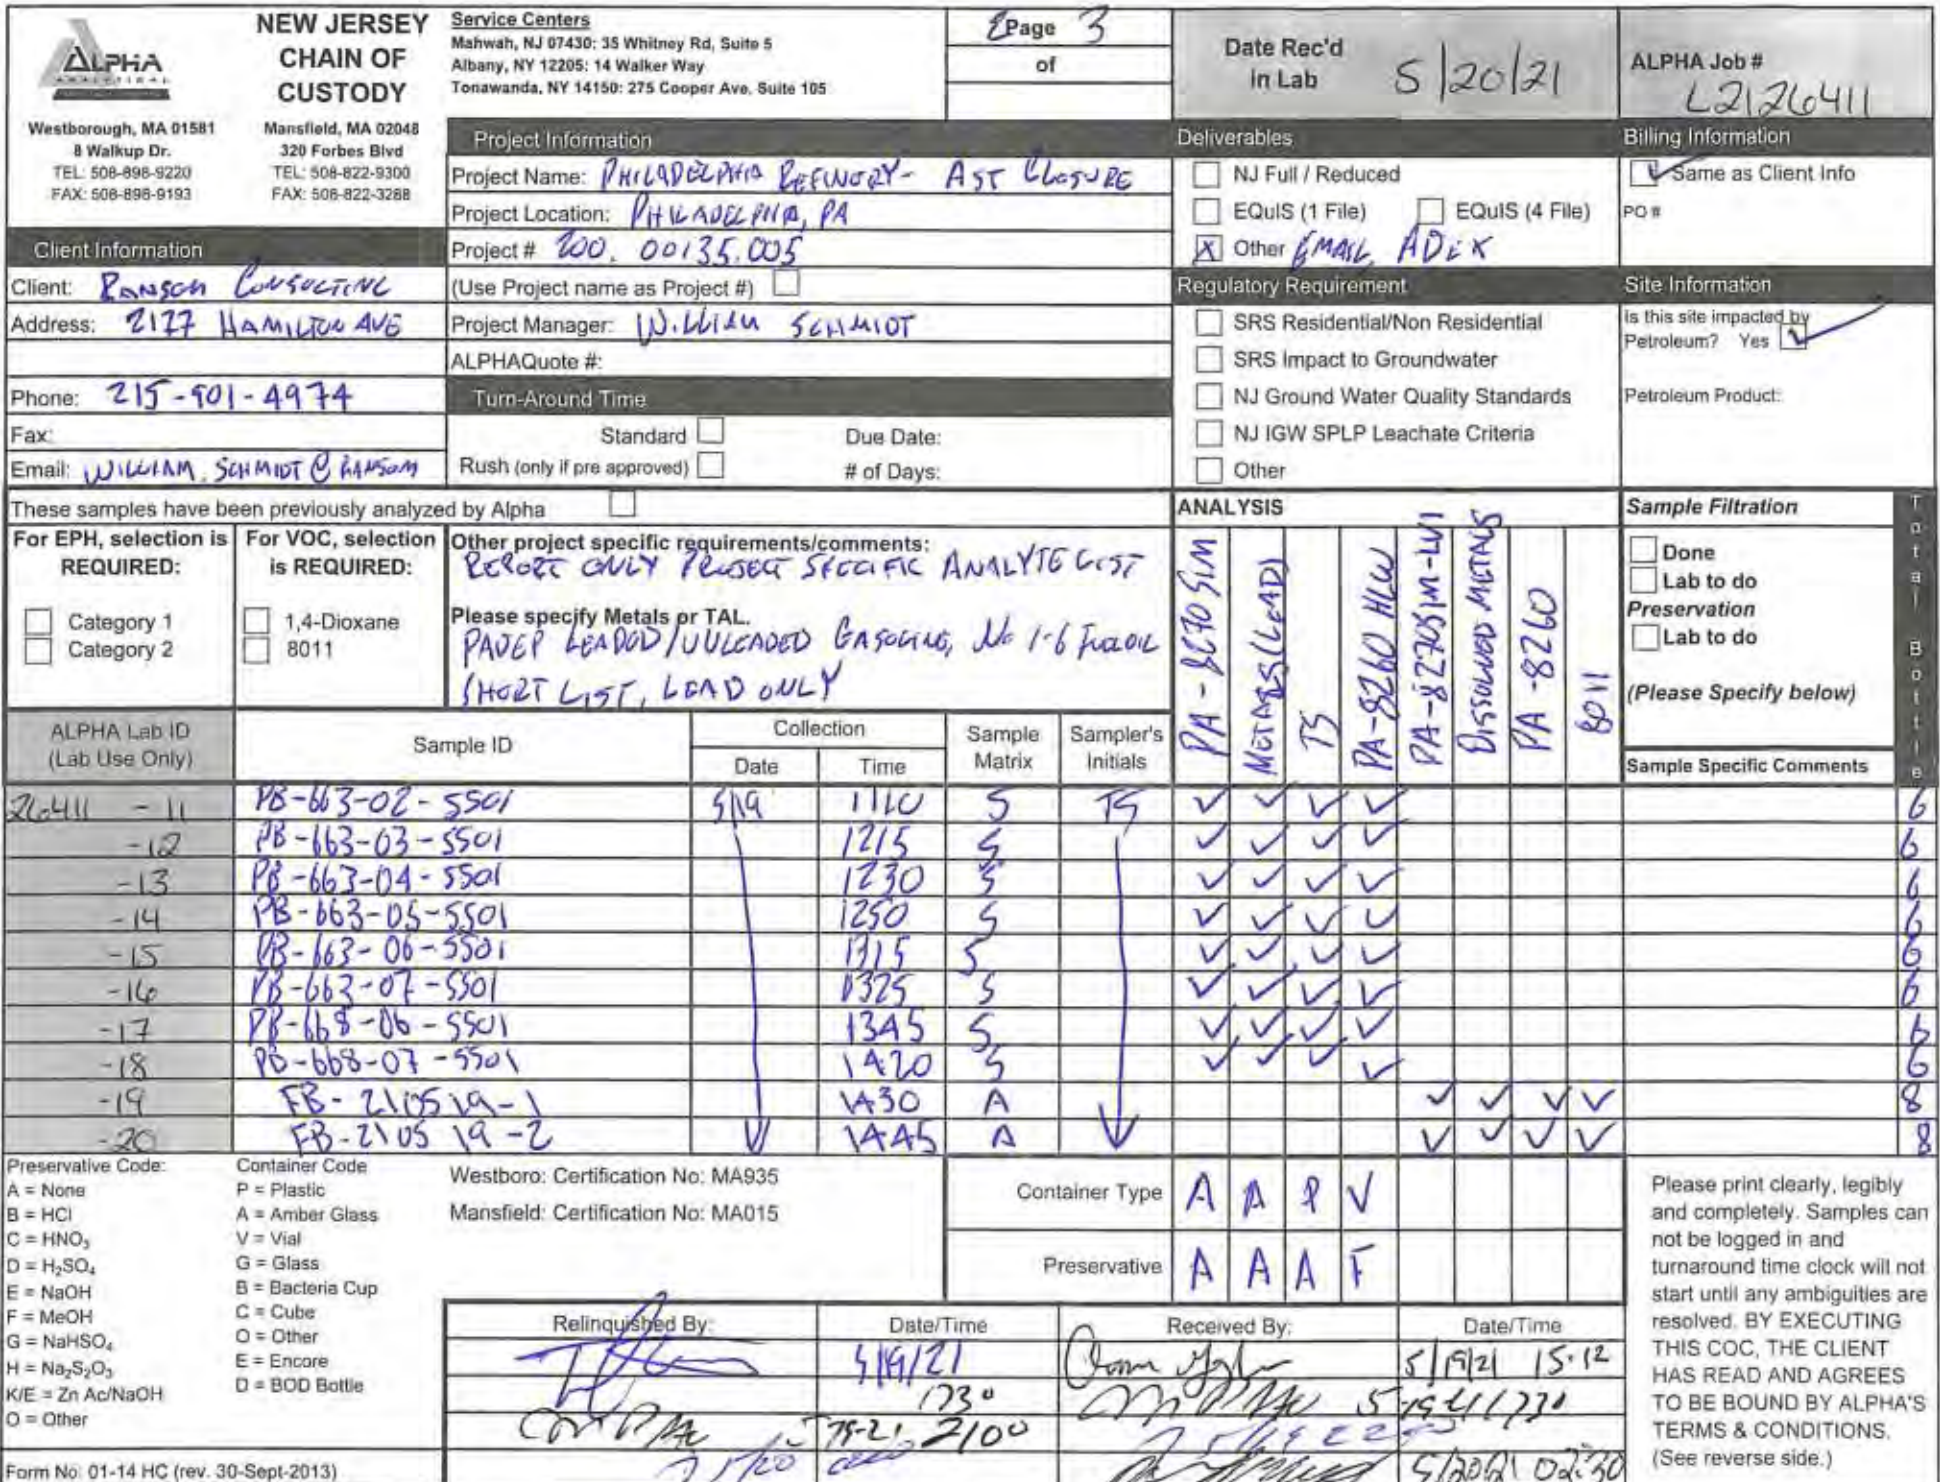 ALPHA
ANALYTICAL
NEW JERSEY
CHAIN OF
CUSTODY
Westborough, MA 01581
8 Walkup Dr.
TEL: 508-898-9220
FAX: 508-898-9193
Mansfield, MA 02048
320 Forbes Blvd
TEL: 508-822-9300
FAX: 508-822-3288
Service Centers
Mahwah, NJ 07430: 35 Whitney Rd, Suite 5
Albany, NY 12205: 14 Walker Way
Tonawanda, NY 14150: 275 Cooper Ave, Suite 105
Page 3
of
Date Rec'd
in Lab 5/20/21
ALPHA Job #
L2126411
Project Information
Project Name: PHILADELPHIA REFINERY - AST CLOSURE
Project Location: PHILADELPHIA, PA
Project # 200.00135.005
(Use Project name as Project #)
Project Manager: WILLIAM SCHMIDT
ALPHAQuote #:
Turn-Around Time
Standard Due Date:
Rush (only if pre approved) # of Days:
Deliverables
NJ Full / Reduced
EQuIS (1 File) EQuIS (4 File)
X Other EMAIL, ADEX
Regulatory Requirement
SRS Residential/Non Residential
SRS Impact to Groundwater
NJ Ground Water Quality Standards
NJ IGW SPLP Leachate Criteria
Other
Billing Information
Same as Client Info
PO #
Site Information
Is this site impacted by
Petroleum? Yes
Petroleum Product:
Client Information
Client: RANSOM CONSULTING
Address: 2127 HAMILTON AVE
Phone: 215-901-4974
Fax:
Email: WILLIAM.SCHMIDT@RANSOM
These samples have been previously analyzed by Alpha
For EPH, selection is
REQUIRED:
Category 1
Category 2
For VOC, selection
is REQUIRED:
1,4-Dioxane
8011
Other project specific requirements/comments:
REPORT ONLY PROJECT SPECIFIC ANALYTE LIST
Please specify Metals or TAL.
PADEP LEADED/UNLEADED GASOLINE, No 1-6 FUEL OIL
SHORT LIST, LEAD ONLY
ANALYSIS
PA-8270 SIM
METALS (LEAD)
TS
PA-8260 HLW
PA-8270SIM-LVI
DISSOLVED METALS
PA-8260
8011
Sample Filtration
Done
Lab to do
Preservation
Lab to do
(Please Specify below)
Total Bottle
ALPHA Lab ID
(Lab Use Only)
Sample ID
Collection
Date Time
Sample
Matrix
Sampler's
Initials
Sample Specific Comments
26411 -11 PB-663-02-SS01 5/19 1110 S TS 6
-12 PB-663-03-SS01 1215 S 6
-13 PB-663-04-SS01 1230 S 6
-14 PB-663-05-SS01 1250 S 6
-15 PB-663-06-SS01 1315 S 6
-16 PB-663-07-SS01 1325 S 6
-17 PB-668-06-SS01 1345 S 6
-18 PB-668-07-SS01 1420 S 6
-19 FB-210519-1 1430 A 8
-20 FB-210519-2 1445 A 8
Preservative Code:
A = None
B = HCl
C = HNO₃
D = H₂SO₄
E = NaOH
F = MeOH
G = NaHSO₄
H = Na₂S₂O₃
K/E = Zn Ac/NaOH
O = Other
Container Code
P = Plastic
A = Amber Glass
V = Vial
G = Glass
B = Bacteria Cup
C = Cube
O = Other
E = Encore
D = BOD Bottle
Westboro: Certification No: MA935
Mansfield: Certification No: MA015
Container Type A A P V
Preservative A A A F
Relinquished By: Date/Time Received By: Date/Time
5/19/21 5/19/21 15:12
1730
2100
5/20/21 02:30
Please print clearly, legibly
and completely. Samples can
not be logged in and
turnaround time clock will not
start until any ambiguities are
resolved. BY EXECUTING
THIS COC, THE CLIENT
HAS READ AND AGREES
TO BE BOUND BY ALPHA'S
TERMS & CONDITIONS.
(See reverse side.)
Form No: 01-14 HC (rev. 30-Sept-2013)